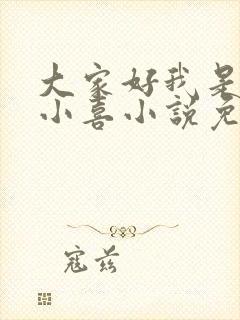 大家好我是
小喜小说免
寇兹